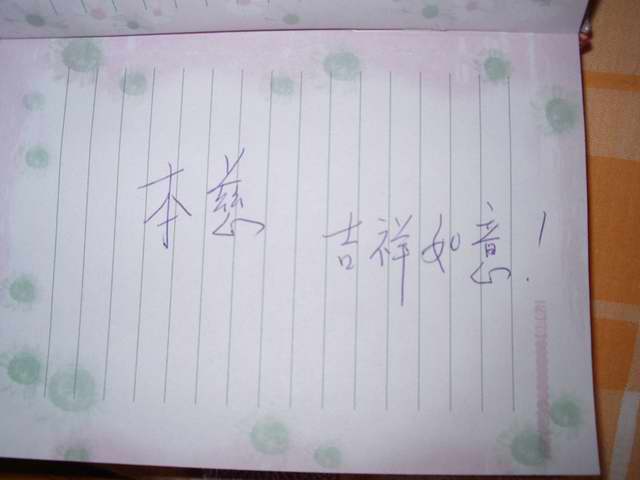 本慈 吉祥如意!